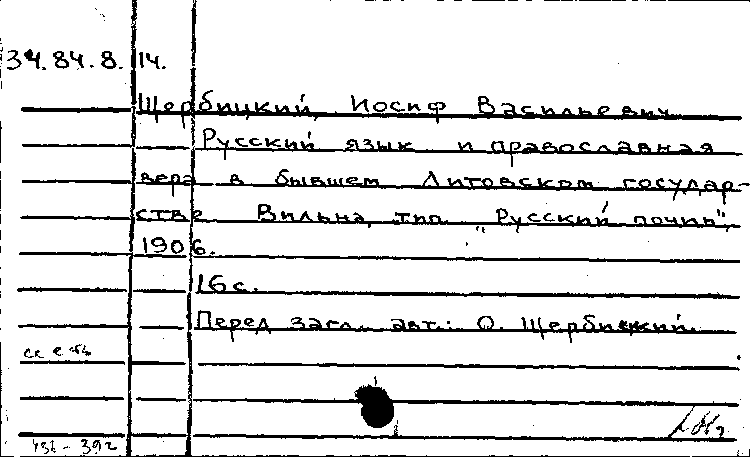 34.84.8.14.
Щербицкий, Иосиф Васильевич
Русский язык и православная
вера в бывшем Литовском государ-
стве. Вильна, тип. "Русский почин",
1906.
16 с.
Перед загл. авт.: О. Щербицкий.
436 - 392